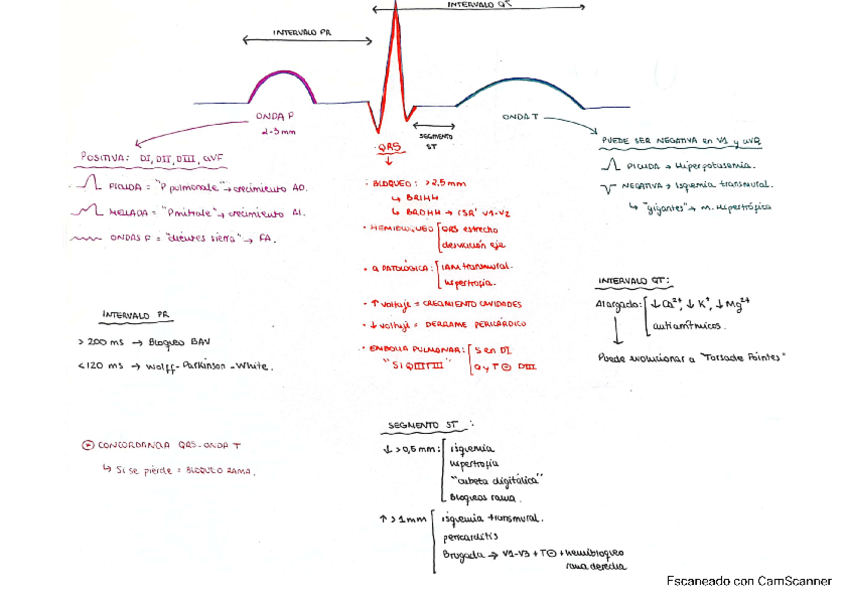 INTERVALO QT
INTERVALO PR
ONDA P
2-3 mm
SEGMENTO
ST
ONDA T
QRS
POSITIVA: DI, DII, DIII, aVF
PICUDA = "P pulmonale" → crecimiento AD.
MELLADA = "P mitrale" → crecimiento AI.
ONDAS F = "dientes sierra" → FA.
INTERVALO PR
> 200 ms → Bloqueo BAV
< 120 ms → Wolff-Parkinson-White.
CONCORDANCIA QRS-ONDA T
↳ Si se pierde = BLOQUEO RAMA.
· BLOQUEO: > 2,5 mm
↳ BRIHH
↳ BRDHH → rSR' V1-V2
· HEMIBLOQUEO QRS estrecho
desviación eje
· Q PATOLÓGICA: IAM transmural.
Hipertrofia.
· ↑ voltaje = CRECIMIENTO CAVIDADES
· ↓ voltaje = DERRAME PERICÁRDICO
· EMBOLIA PULMONAR: S en DI
"SI QIII TIII" Q y T ⊖ DIII
SEGMENTO ST :
↓ > 0,5 mm: isquemia
Hipertrofia
"cubeta digitálica"
Bloqueos rama.
↑ > 1 mm isquemia transmural.
pericarditis
Brugada → V1-V3 + T⊖ + hemibloqueo
rama derecha
PUEDE SER NEGATIVA en V1 y aVR
PICUDA → Hiperpotasemia.
NEGATIVA → Isquemia transmural.
↳ "gigantes" → M. Hipertrófica
INTERVALO QT:
Alargado: ↓ Ca²⁺, ↓ K⁺, ↓ Mg²⁺
antiarrítmicos.
Puede evolucionar a "Torsade Pointes"
Escaneado con CamScanner